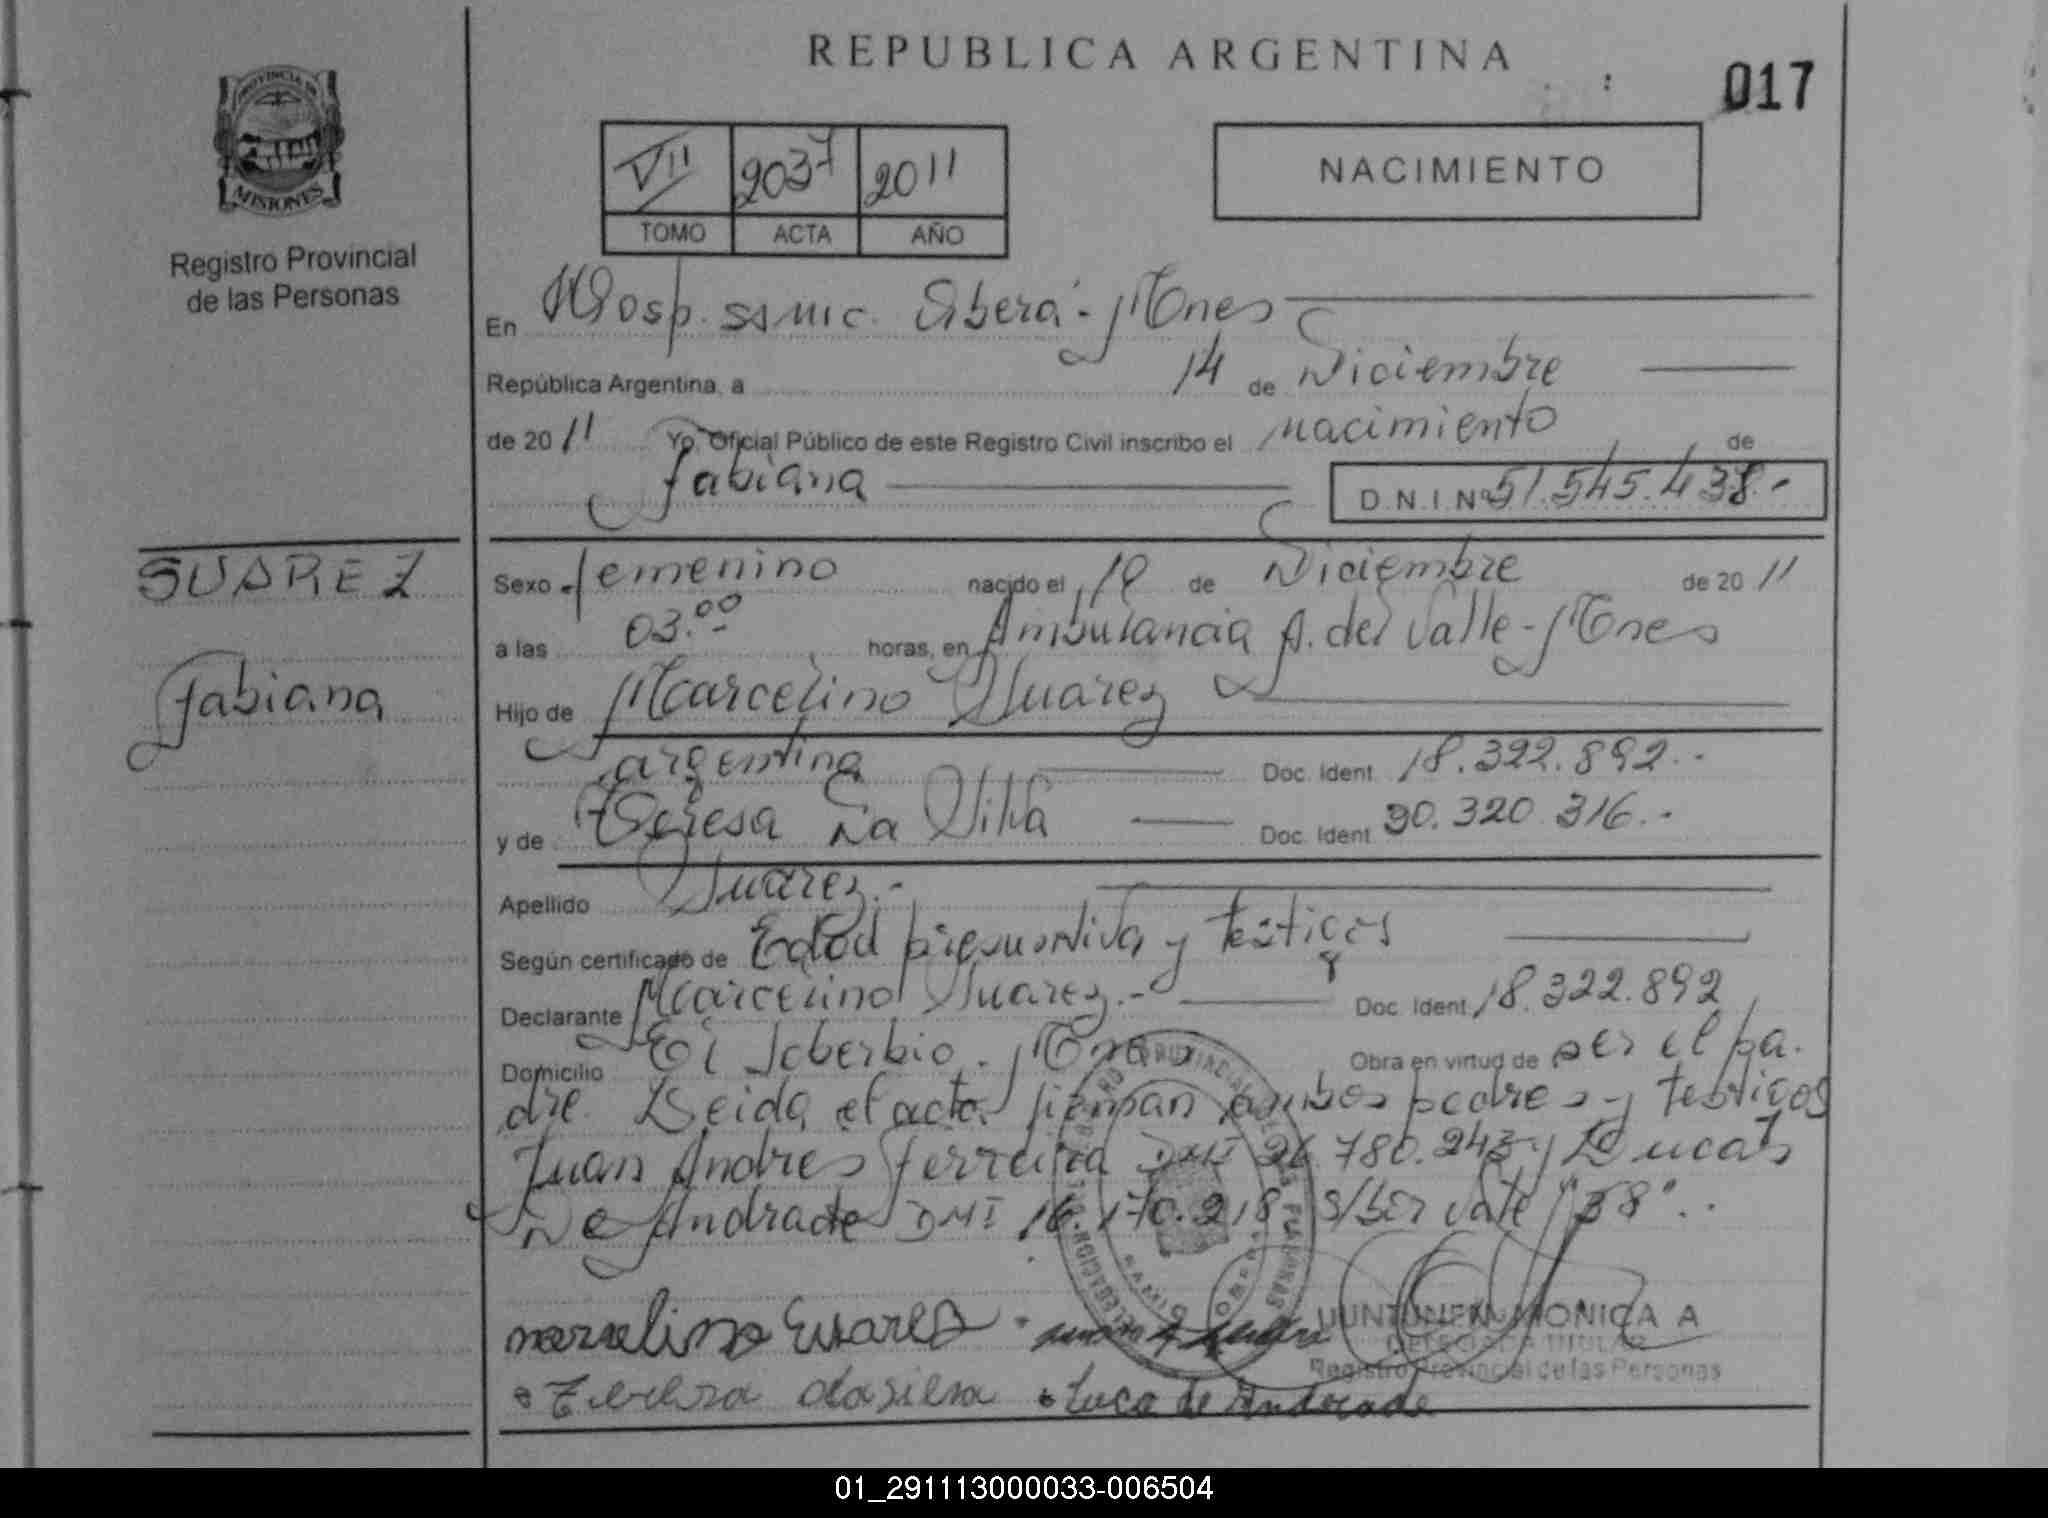 REPUBLICA ARGENTINA
017
PROVINCIA DE
MISIONES
Registro Provincial
de las Personas
VII 2037 2011
TOMO ACTA AÑO
NACIMIENTO
En Hosp. SSMIC. Oberá - Mnes
República Argentina, a 14 de Diciembre
de 2011 Yo, Oficial Público de este Registro Civil inscribo el nacimiento de
Fabiana D.N.I. Nº 51.545.438.-
SUAREZ
Fabiana
Sexo femenino nacido el de Diciembre de 2011
a las 03.00 horas, en Ambulancia A. del Valle - Mnes
Hijo de Marcelino Suarez
argentina Doc. Ident. 18.322.892.-
y de Teresa Da Silva Doc. Ident. 30.320.316.-
Apellido Suarez.-
Según certificado de Edad presuntiva y testigos
Declarante Marcelino Suarez.- Doc. Ident. 18.322.892
Domicilio El Soberbio - Mnes Obra en virtud de ser el pa-
dre. Leida el acta firman ambos padres y testigos
Juan Andres Ferreira DNI 780.243 y Lucas
De Andrade DNI 16.170.218 S/ber vale "38".-
marcelino Suares
Luca de Andrade
MONICA A
DELEGADA TITULAR
Registro Provincial de las Personas
01_291113000033-006504